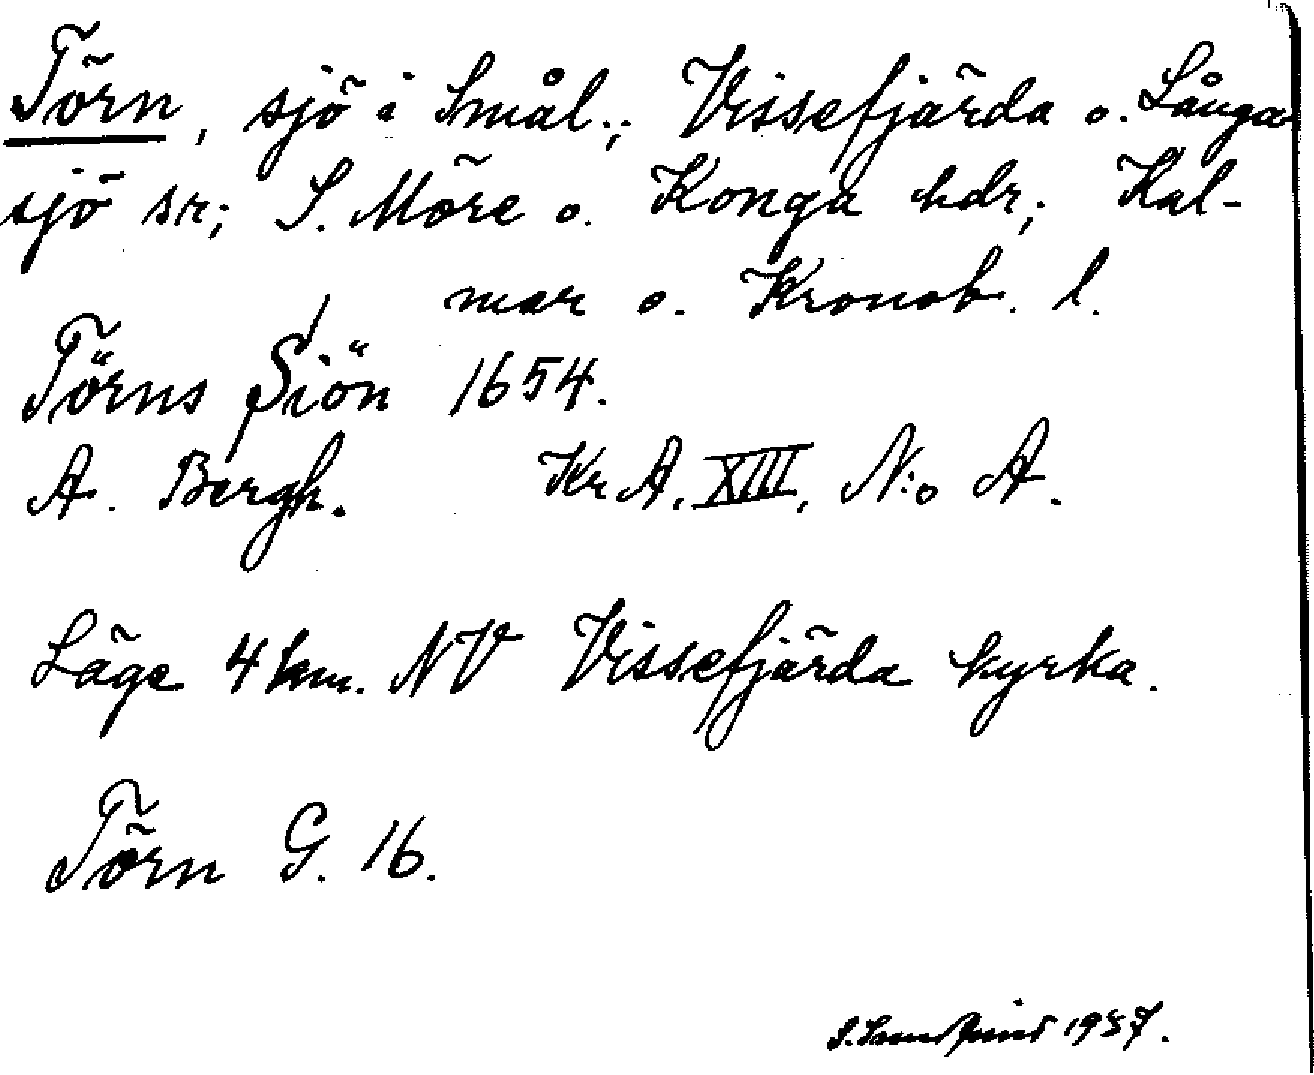 Törn, sjö i Smål.; Vissefjärda o. Långa-
sjö sr; S. Möre o. Konga hdr; Kal-
mar o. Kronob. l.
Törns Siön 1654.
A. Bergh. Kr A. XIII, N:o A.
Läge 4 km. NV Vissefjärda kyrka.
Törn G. 16.
1937.